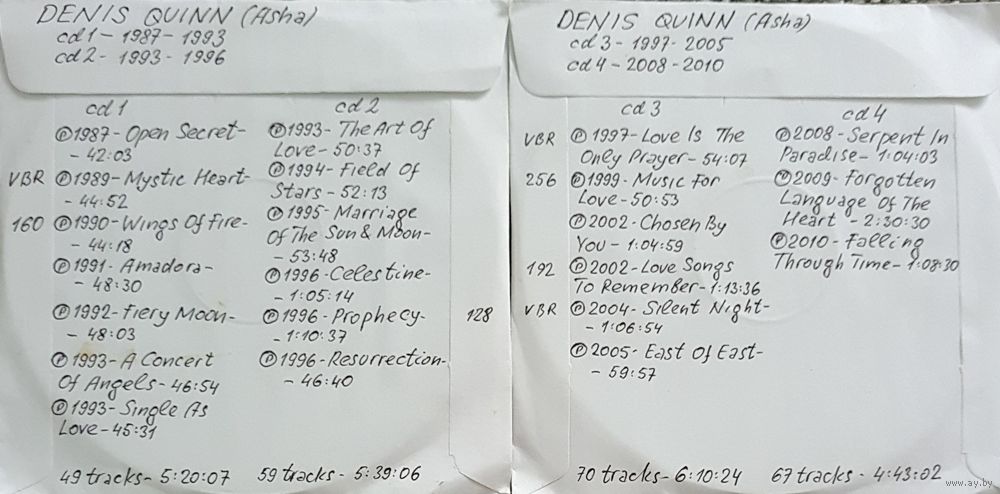 DENIS QUINN (Asha)
cd1 - 1987 - 1993
cd2 - 1993 - 1996
cd1
Ⓟ1987 - Open Secret -
- 42:03
VBR Ⓟ1989 - Mystic Heart -
- 44:52
160 Ⓟ1990 - Wings Of Fire -
- 44:18
Ⓟ1991 - Amadora -
- 48:30
Ⓟ1992 - Fiery Moon -
- 48:03
Ⓟ1993 - A Concert
Of Angels - 46:54
Ⓟ1993 - Single As
Love - 45:31
49 tracks - 5:20:07
cd2
Ⓟ1993 - The Art Of
Love - 50:37
Ⓟ1994 - Field Of
Stars - 52:13
Ⓟ1995 - Marriage
Of The Sun & Moon -
- 53:48
Ⓟ1996 - Celestine -
- 1:05:14
Ⓟ1996 - Prophecy - 128
- 1:10:37
Ⓟ1996 - Resurrection -
- 46:40
59 tracks - 5:39:06
DENIS QUINN (Asha)
cd3 - 1997 - 2005
cd4 - 2008 - 2010
cd3
VBR Ⓟ1997 - Love Is The
Only Prayer - 54:07
256 Ⓟ1999 - Music For
Love - 50:53
Ⓟ2002 - Chosen By
You - 1:04:59
192 Ⓟ2002 - Love Songs
To Remember - 1:13:36
VBR Ⓟ2004 - Silent Night -
- 1:06:54
Ⓟ2005 - East Of East -
- 59:57
70 tracks - 6:10:24
cd4
Ⓟ2008 - Serpent In
Paradise - 1:04:03
Ⓟ2009 - Forgotten
Language Of The
Heart - 2:30:30
Ⓟ2010 - Falling
Through Time - 1:08:30
67 tracks - 4:43:02
www.ay.by